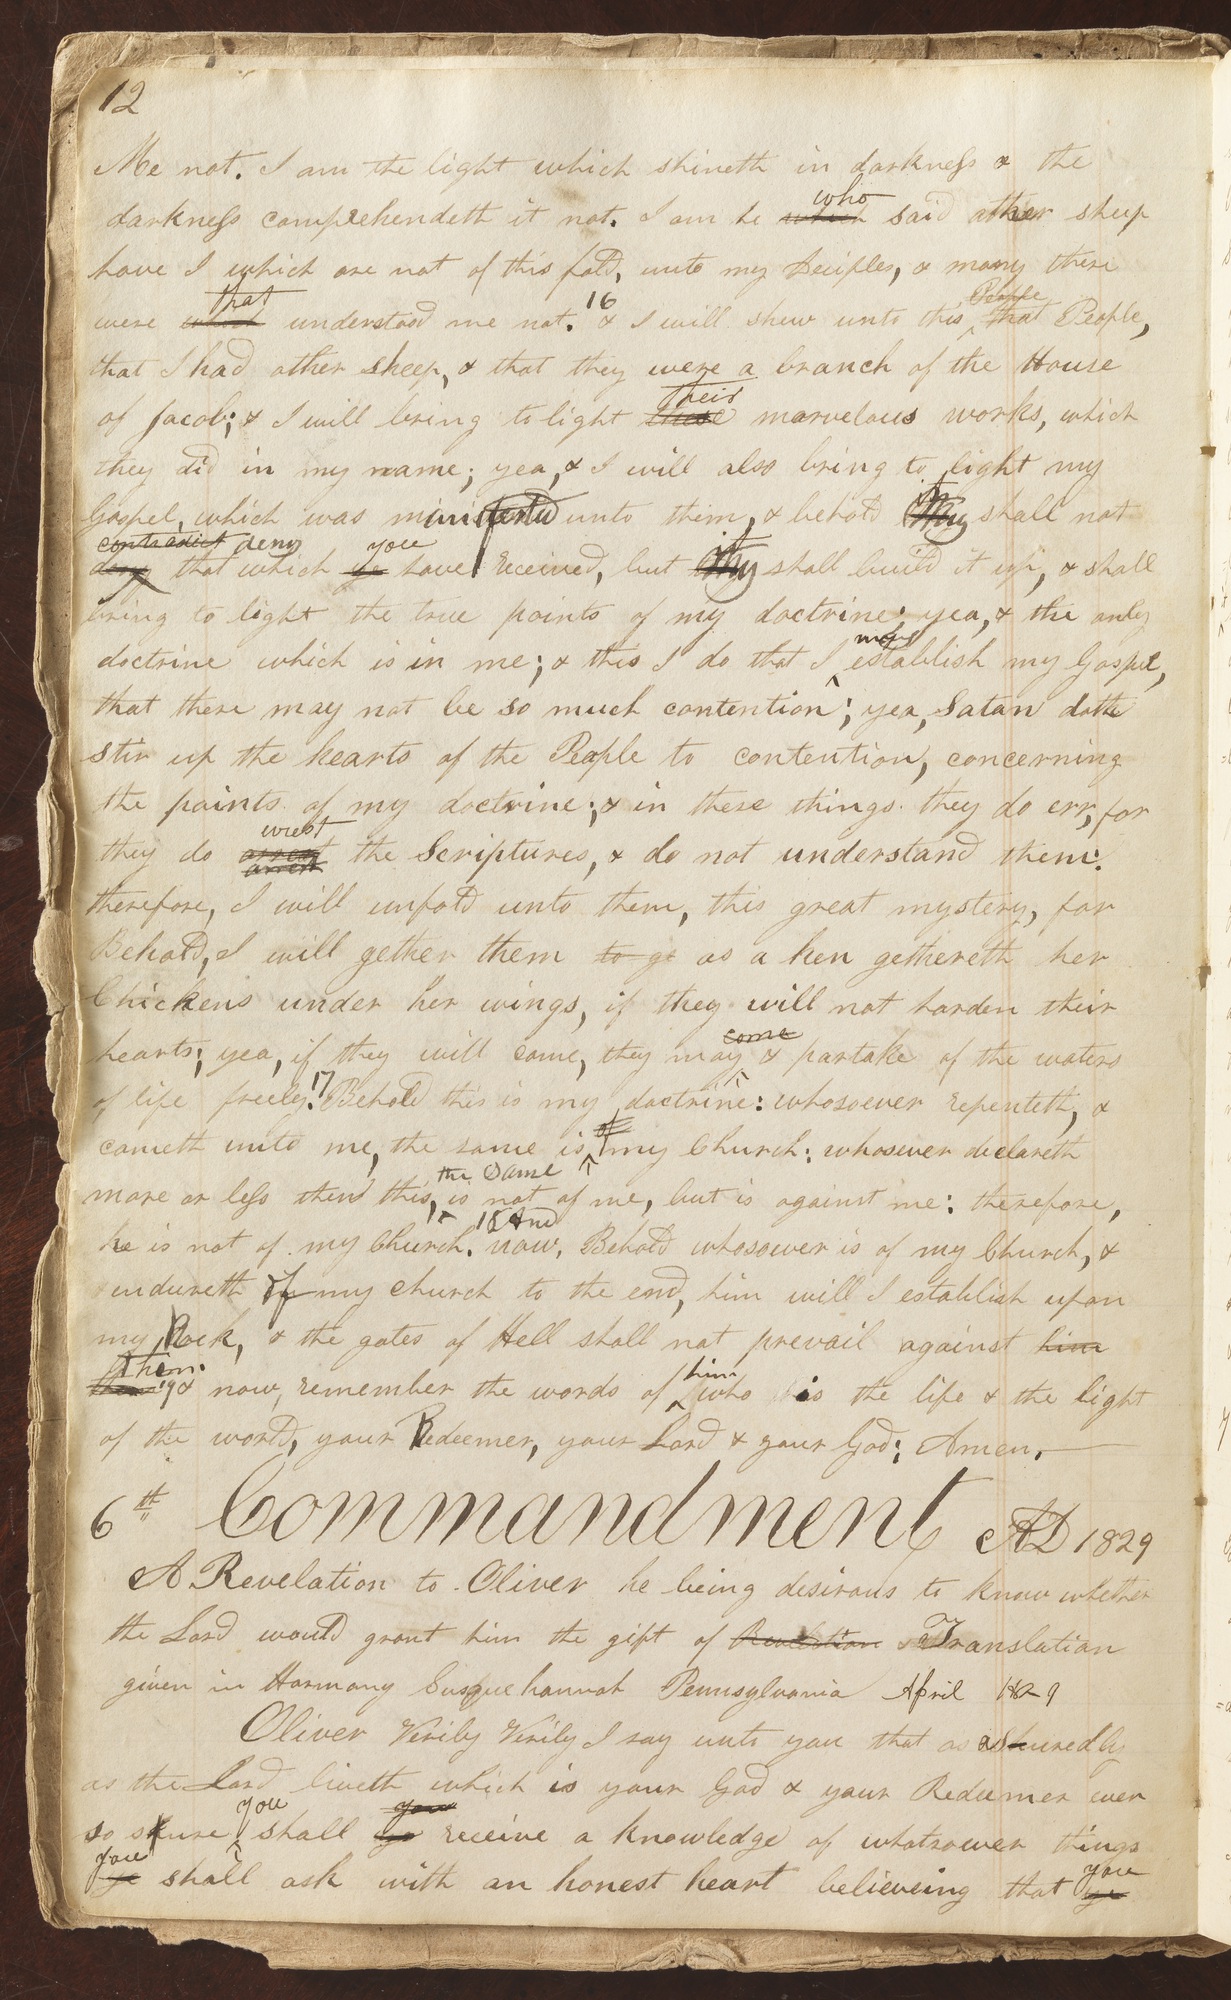 12
Me not. I am the light which shineth in darkness & the
darkness comprehendeth it not. I am he which who said other sheep
have I which are not of this fold, unto my Deciples, & many there
were which that understood me not. 16 & I will shew unto this People that People,
that I had other sheep, & that they were a branch of the House
of Jacob; & I will bring to light these their marvelous works, which
they did in my name; yea, & I will also bring to light my
Gospel, which was ministerd unto them, & behold they shall not
deny contradict deny that which ye you have received, but they shall build it up, & shall
bring to light the true points of my doctrine; yea, & the only
doctrine which is in me; & this I do that I may establish my Gospel,
that there may not be so much contention; yea, Satan doth
stir up the hearts of the People to contention, concerning
the points of my doctrine; & in these things they do err, for
they do arrest wrest the Scriptures, & do not understand them.
therefore, I will unfold unto them, this great mystery, for
Behold, I will gether them to ge as a hen gethereth her
Chickens under her wings, if they will not harden their
hearts; yea, if they will come, they may come & partake of the waters
of life freely. 17 Behold this is my doctrine: whosoever repenteth, &
cometh unto me, the same is of my Church: whosoever declareth
more or less then this, the same is not of me, but is against me: therefore,
he is not of my Church. 18 And now, Behold whosoever is of my Church, &
endureth of my church to the end, him will I establish upon
my Rock, & the gates of Hell shall not prevail against him
them them. 19 & now, remember the words of him who is the life & the light
of the world, your Redeemer, your Lord & your God; Amen.
6th Commandment AD 1829
A Revelation to Oliver he being desirous to know whether
the Lord would grant him the gift of Revelation Translation
given in Harmony Susquehannah Pennsylvania April 1829
Oliver Verily Verily I say unto you that as asuredly
as the Lord liveth which is your God & your Redeemer even
so shure you shall ye you receive a knowledge of whatsoever things
ye you shall ask with an honest heart believeing that ye you